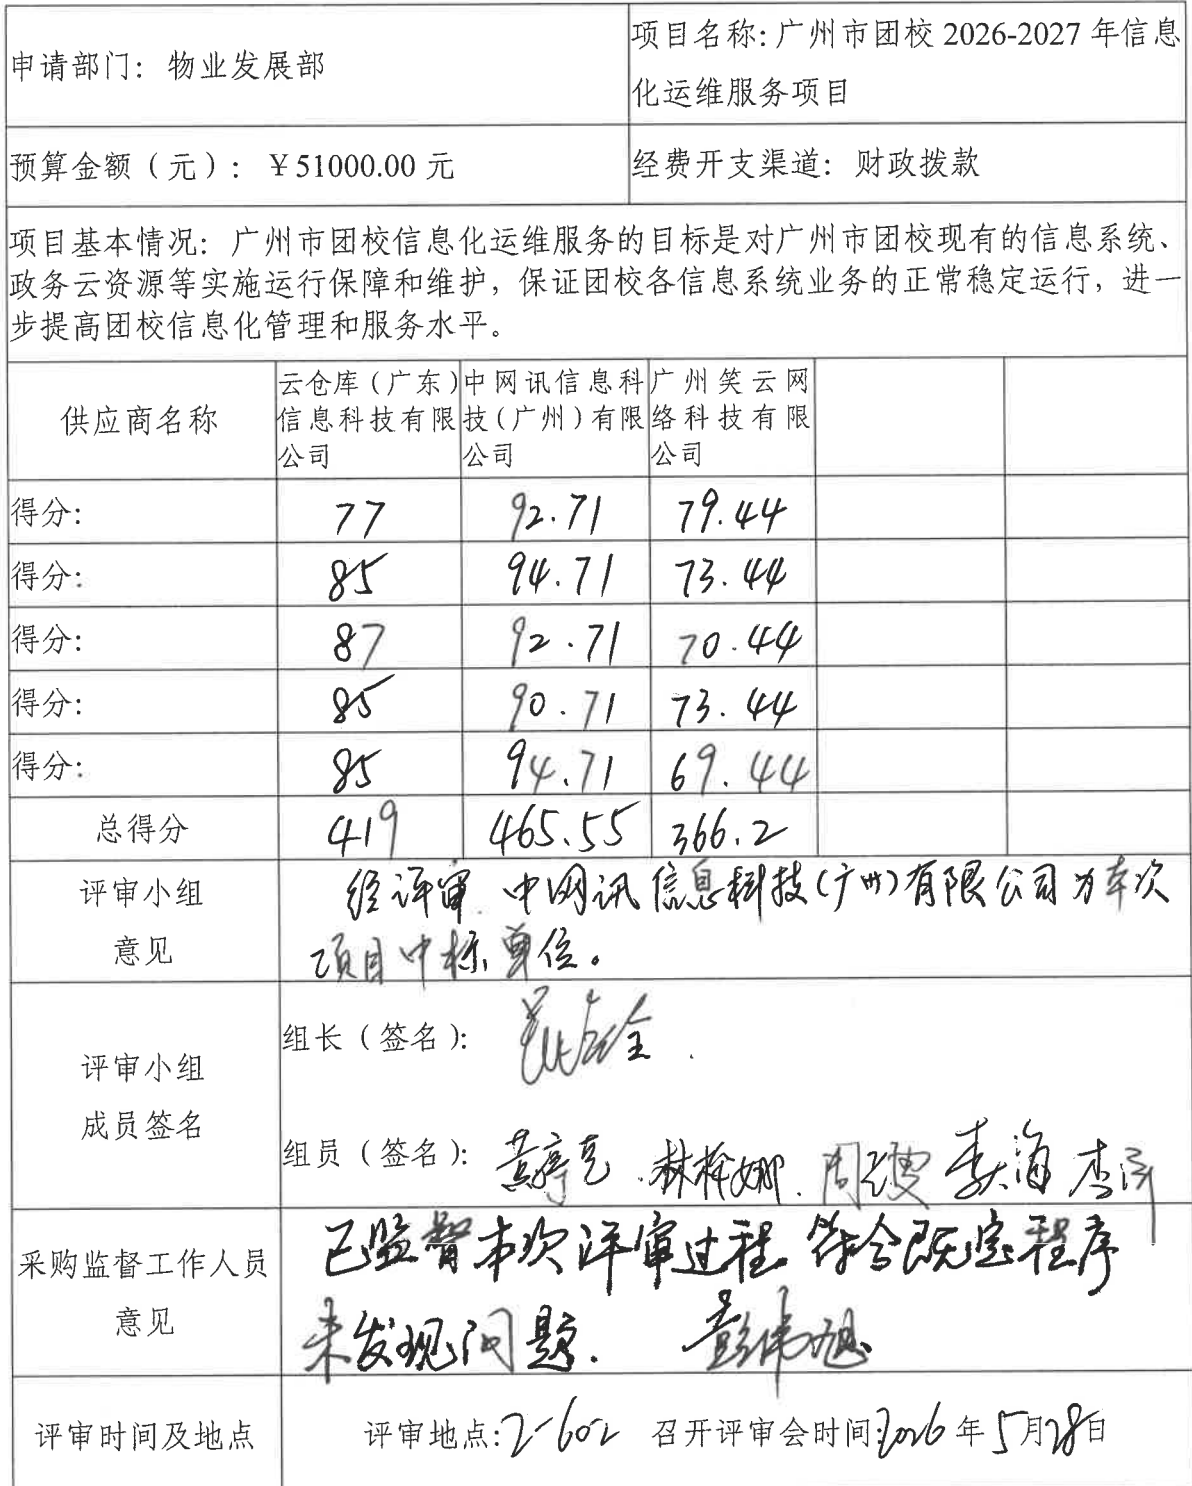 申请部门：物业发展部
项目名称：广州市团校 2026-2027 年信息
化运维服务项目
预算金额（元）：￥51000.00 元
经费开支渠道：财政拨款
项目基本情况：广州市团校信息化运维服务的目标是对广州市团校现有的信息系统、
政务云资源等实施运行保障和维护，保证团校各信息系统业务的正常稳定运行，进一
步提高团校信息化管理和服务水平。
供应商名称
云仓库（广东）
信息科技有限
公司
中网讯信息科
技（广州）有限
公司
广州笑云网
络科技有限
公司
得分： 77 92.71 79.44
得分： 85 94.71 73.44
得分： 87 92.71 70.44
得分： 85 90.71 73.44
得分： 85 94.71 69.44
总得分 419 465.55 366.2
评审小组
意见
经评审 中网讯信息科技（广州）有限公司为本次
项目中标单位。
评审小组
成员签名
组长（签名）：
组员（签名）：
采购监督工作人员
意见
已监督本次评审过程 符合既定程序
未发现问题. 彭伟旭
评审时间及地点
评审地点：2-602 召开评审会时间：2026 年 5 月 28 日